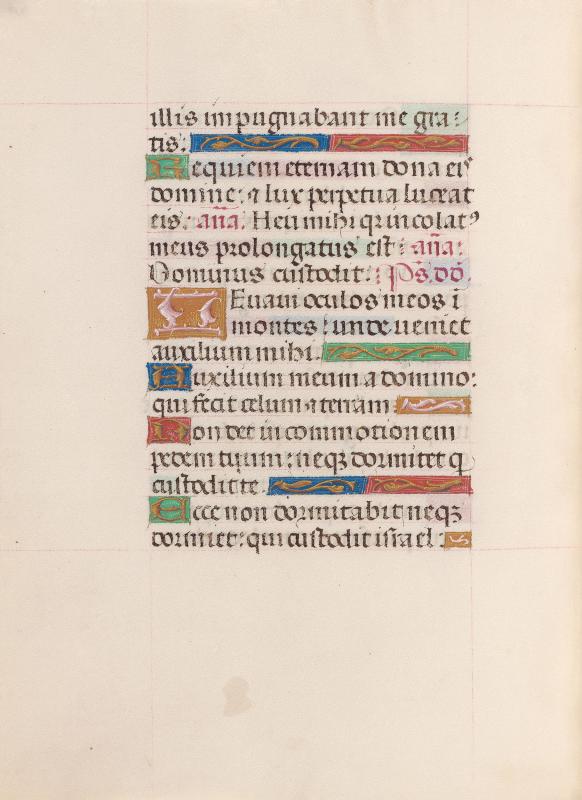 illis impugnabant me gra-
tis:
Requiem eternam dona eis
domine: ⁊ lux perpetua luceat
eis: añа. Heu mihi qr incolatꝰ
meus prolongatus est: aña:
Dominus custodit: Ps. dd̄.
Levavi oculos meos ī
montes: unde veniet
auxilium mihi.
Auxilium meum a domino:
qui fecit celum ⁊ terram
Non det in commotionem
pedem tuum: neqꝫ dormitet q
custodit te.
Ecce non dormitabit neqꝫ
dormiet: qui custodit israel: